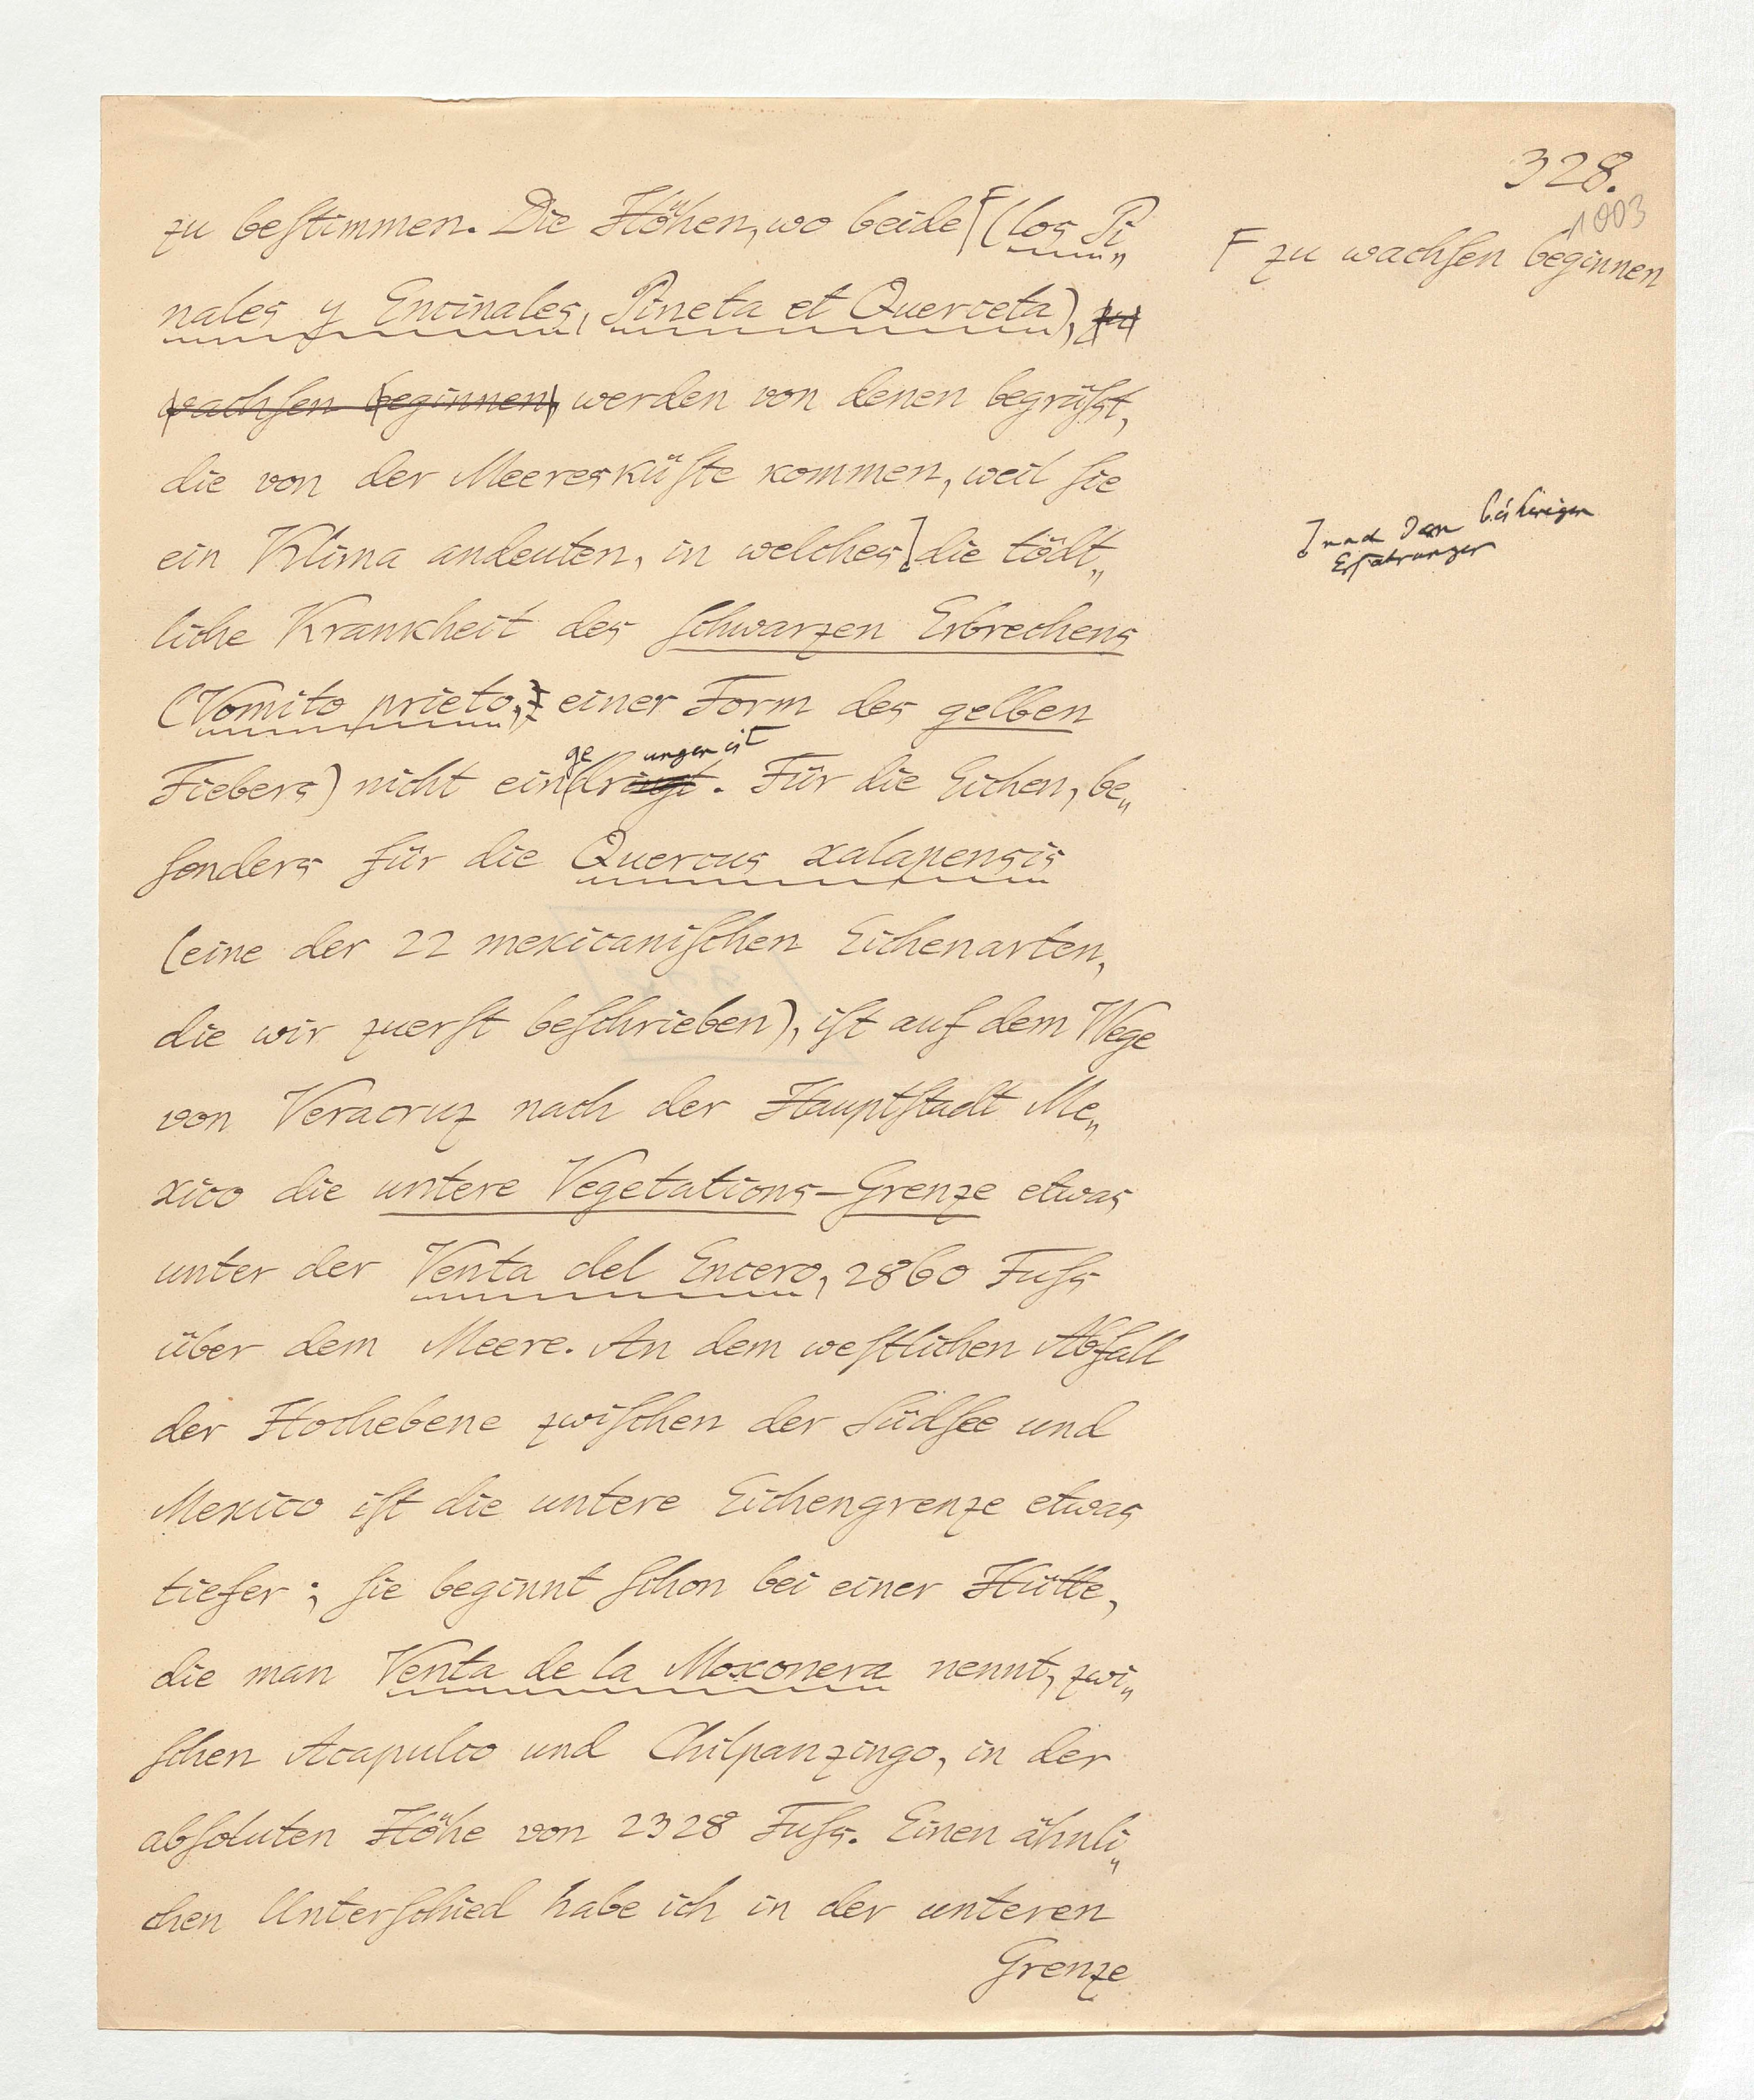 328.
1003
zu beſtimmen. Die Höhen, wo beide (los Pi„
F zu wachſen beginnen
nales y Encinales, Pineta et Querceta), zu
wachſen beginnen, werden von denen begrüſst,
die von der Meeresküſte kommen, weil ſie
ein Klima andeuten, in welches die tödt„
nach den bisherigen
Erfahrungen
liche Krankheit des ſchwarzen Erbrechens
(Vomito prieto,) einer Form des gelben
ge ungen ist
Fiebers) nicht eindringt. Für die Eichen, be„
ſonders für die Quercus xalapensis
(eine der 22 mexicaniſchen Eichenarten,
die wir zuerſt beſchrieben), iſt auf dem Wege
von Veracruz nach der Hauptſtadt Me„
xico die untere Vegetations-Grenze etwas
unter der Venta del Encero, 2860 Fuſs
über dem Meere. An dem weſtlichen Abfall
der Hochebene zwiſchen der Südſee und
Mexico iſt die untere Eichengrenze etwas
tiefer; ſie beginnt ſchon bei einer Hütte,
die man Venta de la Moxonera nennt, zwi„
ſchen Acapulco und Chilpanzingo, in der
abſoluten Höhe von 2328 Fuſs. Einen ähnli„
chen Unterſchied habe ich in der unteren
Grenze